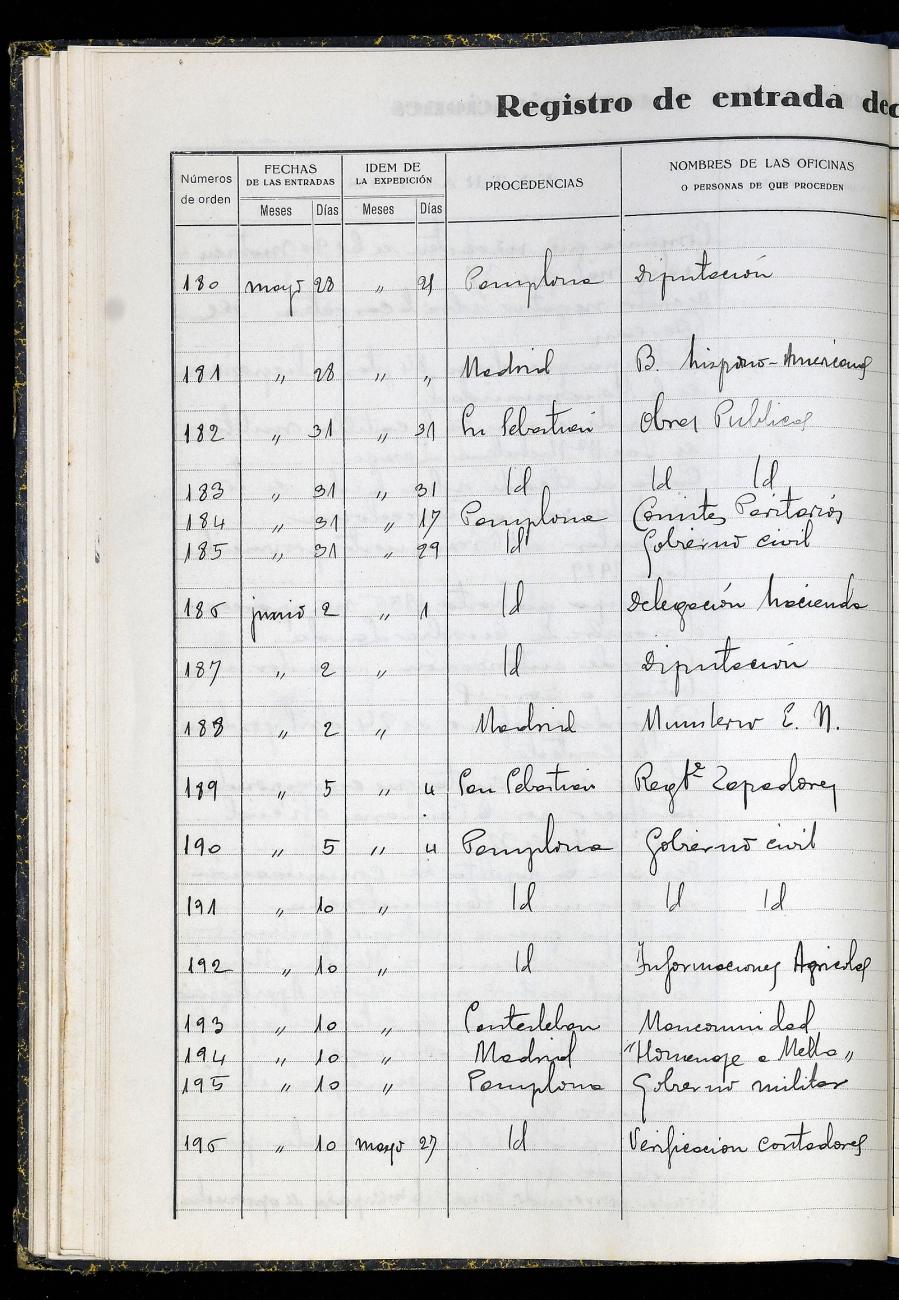 Registro de entrada de
Números de orden FECHAS DE LAS ENTRADAS IDEM DE LA EXPEDICIÓN PROCEDENCIAS NOMBRES DE LAS OFICINAS O PERSONAS DE QUE PROCEDEN
Meses Días Meses Días
180 mayo 28 " 21 Pamplona Diputación
181 " 28 " " Madrid B. hispano-Americano
182 " 31 " 31 Sn Sebastian Obras Publicas
183 " 31 " 31 Id Id Id
184 " 31 " 17 Pamplona Comites Paritarios
185 " 31 " 29 Id Gobierno civil
186 junio 2 " 1 Id Delegación hacienda
187 " 2 " Id Diputación
188 " 2 " Madrid Ministerio E. N.
189 " 5 " 4 San Sebastian Regte Zapadores
190 " 5 " 4 Pamplona Gobierno civil
191 " 10 " Id Id Id
192 " 10 " Id Informaciones Agricolas
193 " 10 " Mancomunidad
194 " 10 " Madrid "Homenaje a Mella"
195 " 10 " Pamplona Gobierno militar
196 " 10 mayo 27 Id Verificacion contadores